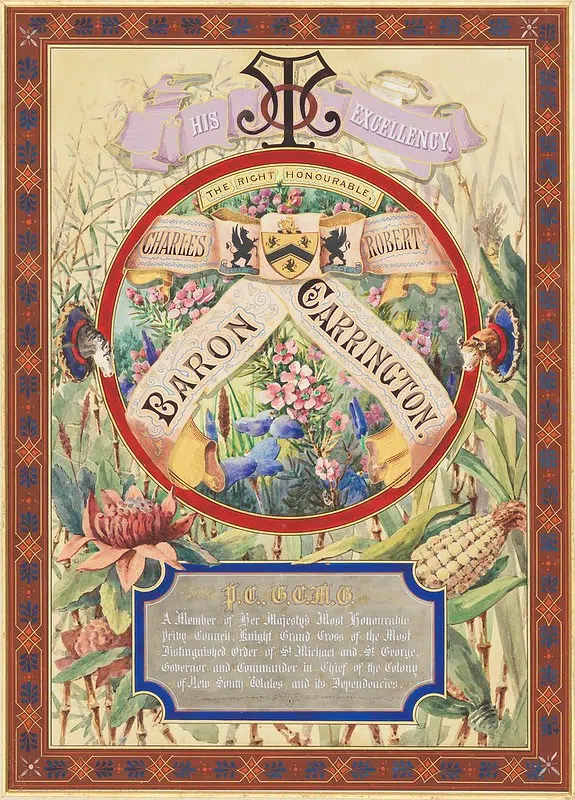 TO
HIS EXCELLENCY,
THE RIGHT HONOURABLE,
CHARLES ROBERT
BARON CARRINGTON.
P.C., G.C.M.G.
A Member of Her Majesty's Most Honourable
Privy Council, Knight Grand Cross of the Most
Distinguished Order of St Michael and St George,
Governor and Commander in Chief of the Colony
of New South Wales, and its Dependencies.